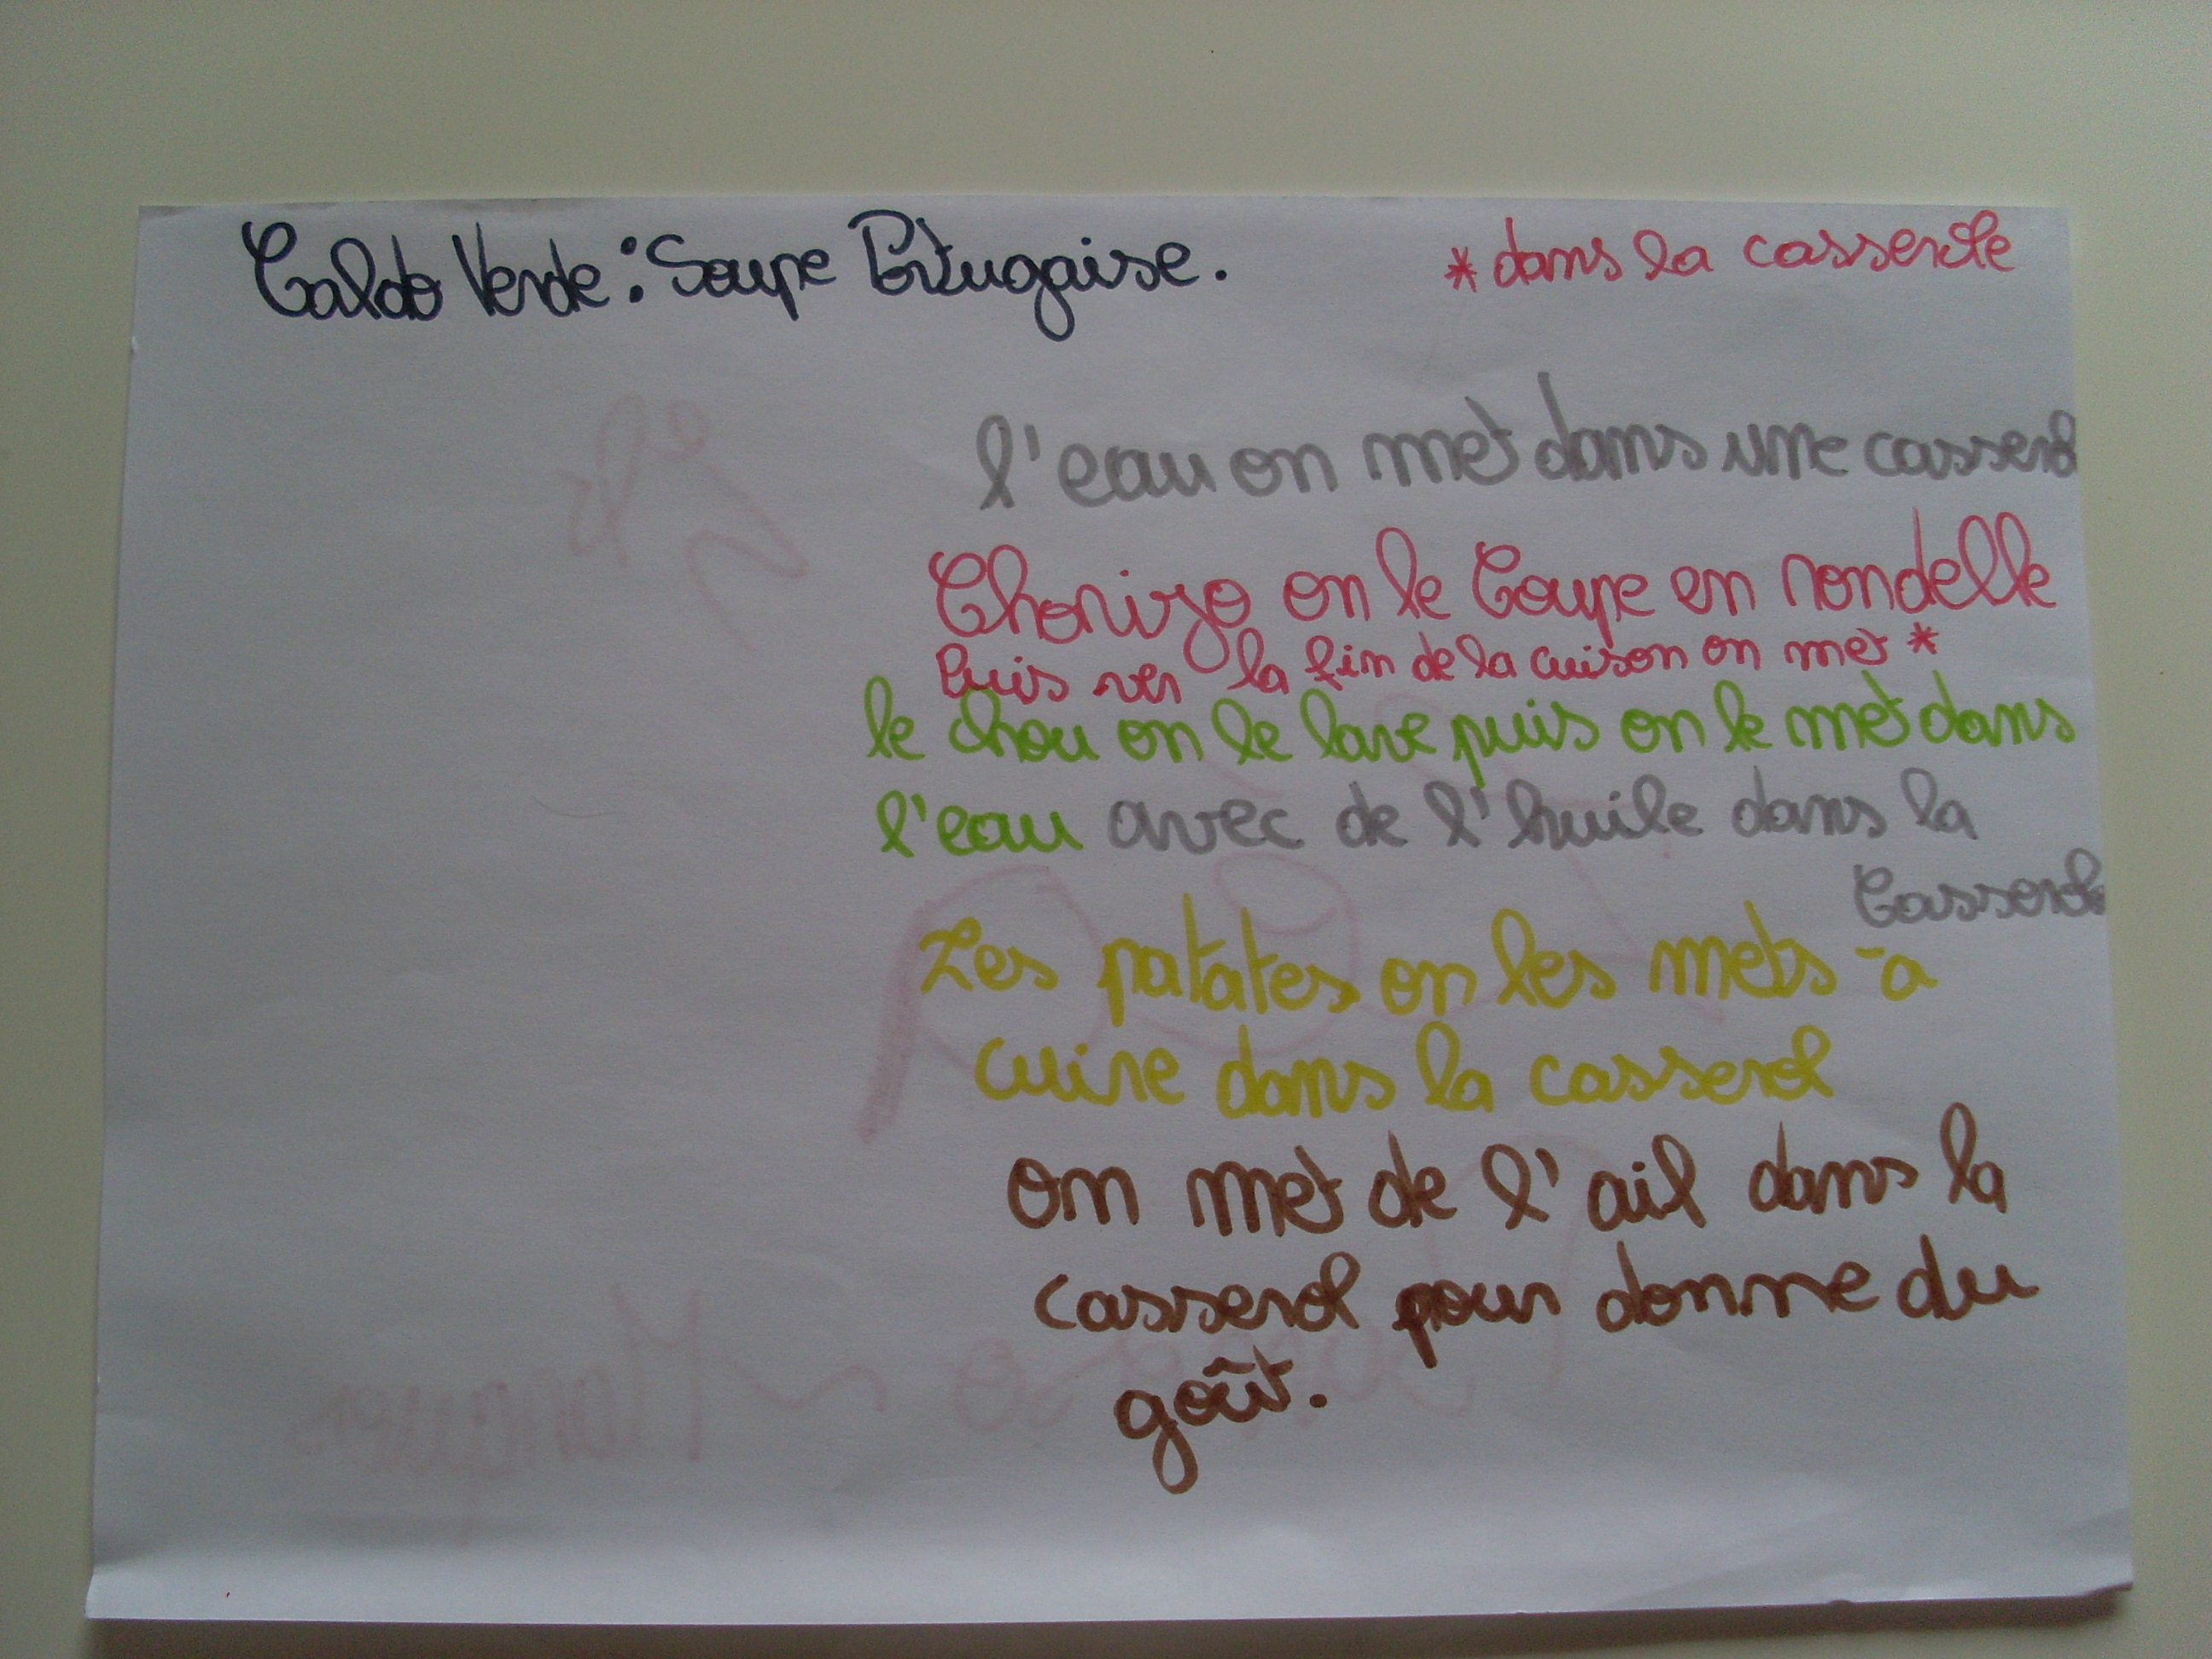 Caldo Verde : Soupe Portugaise.
* dans la casserole
l'eau on met dans une casserol
Chorizo on le Coupe en rondelle
Puis ver la fin de la cuison on met *
le chou on le lave puis on le met dans
l'eau avec de l'huile dans la
Casserole
Les patates on les mets - a
cuire dans la casserol
on met de l'ail dans la
casserol pour donne du
goût.